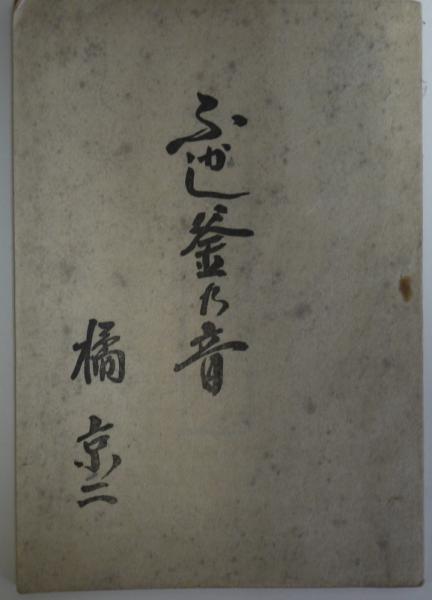 ふかし釜乃音
橘京二